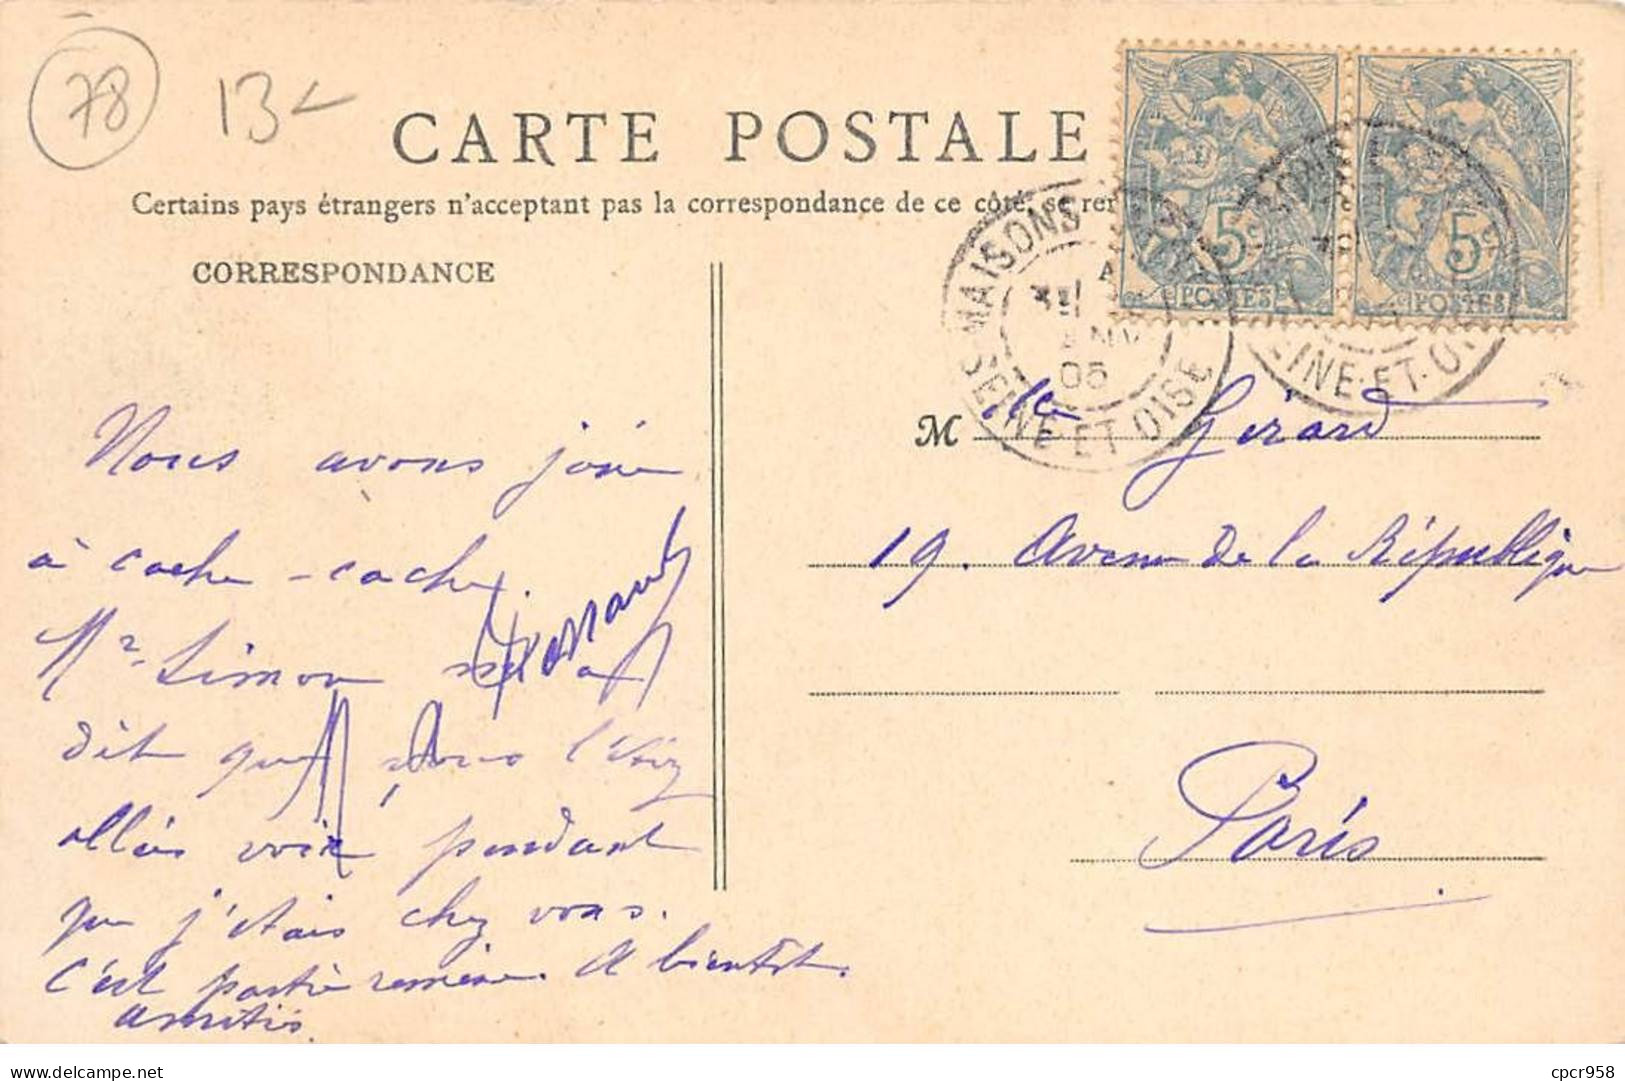 78
13
CARTE POSTALE
Certains pays étrangers n'acceptant pas la correspondance de ce côté, se ren
CORRESPONDANCE
5c
POSTES
5c
POSTES
MAISONS
05
SEINE-ET-OISE
INE-ET-OI
M lle Gérard
19. Avenue de la République
Paris
Nous avons joué
à cache-cache.
Mr Simon m'a
dit que vous l'aviez
allée voir pendant
que j'étais chez vous.
C'est partie remise. A bientôt.
Amitiés.
cpcr958